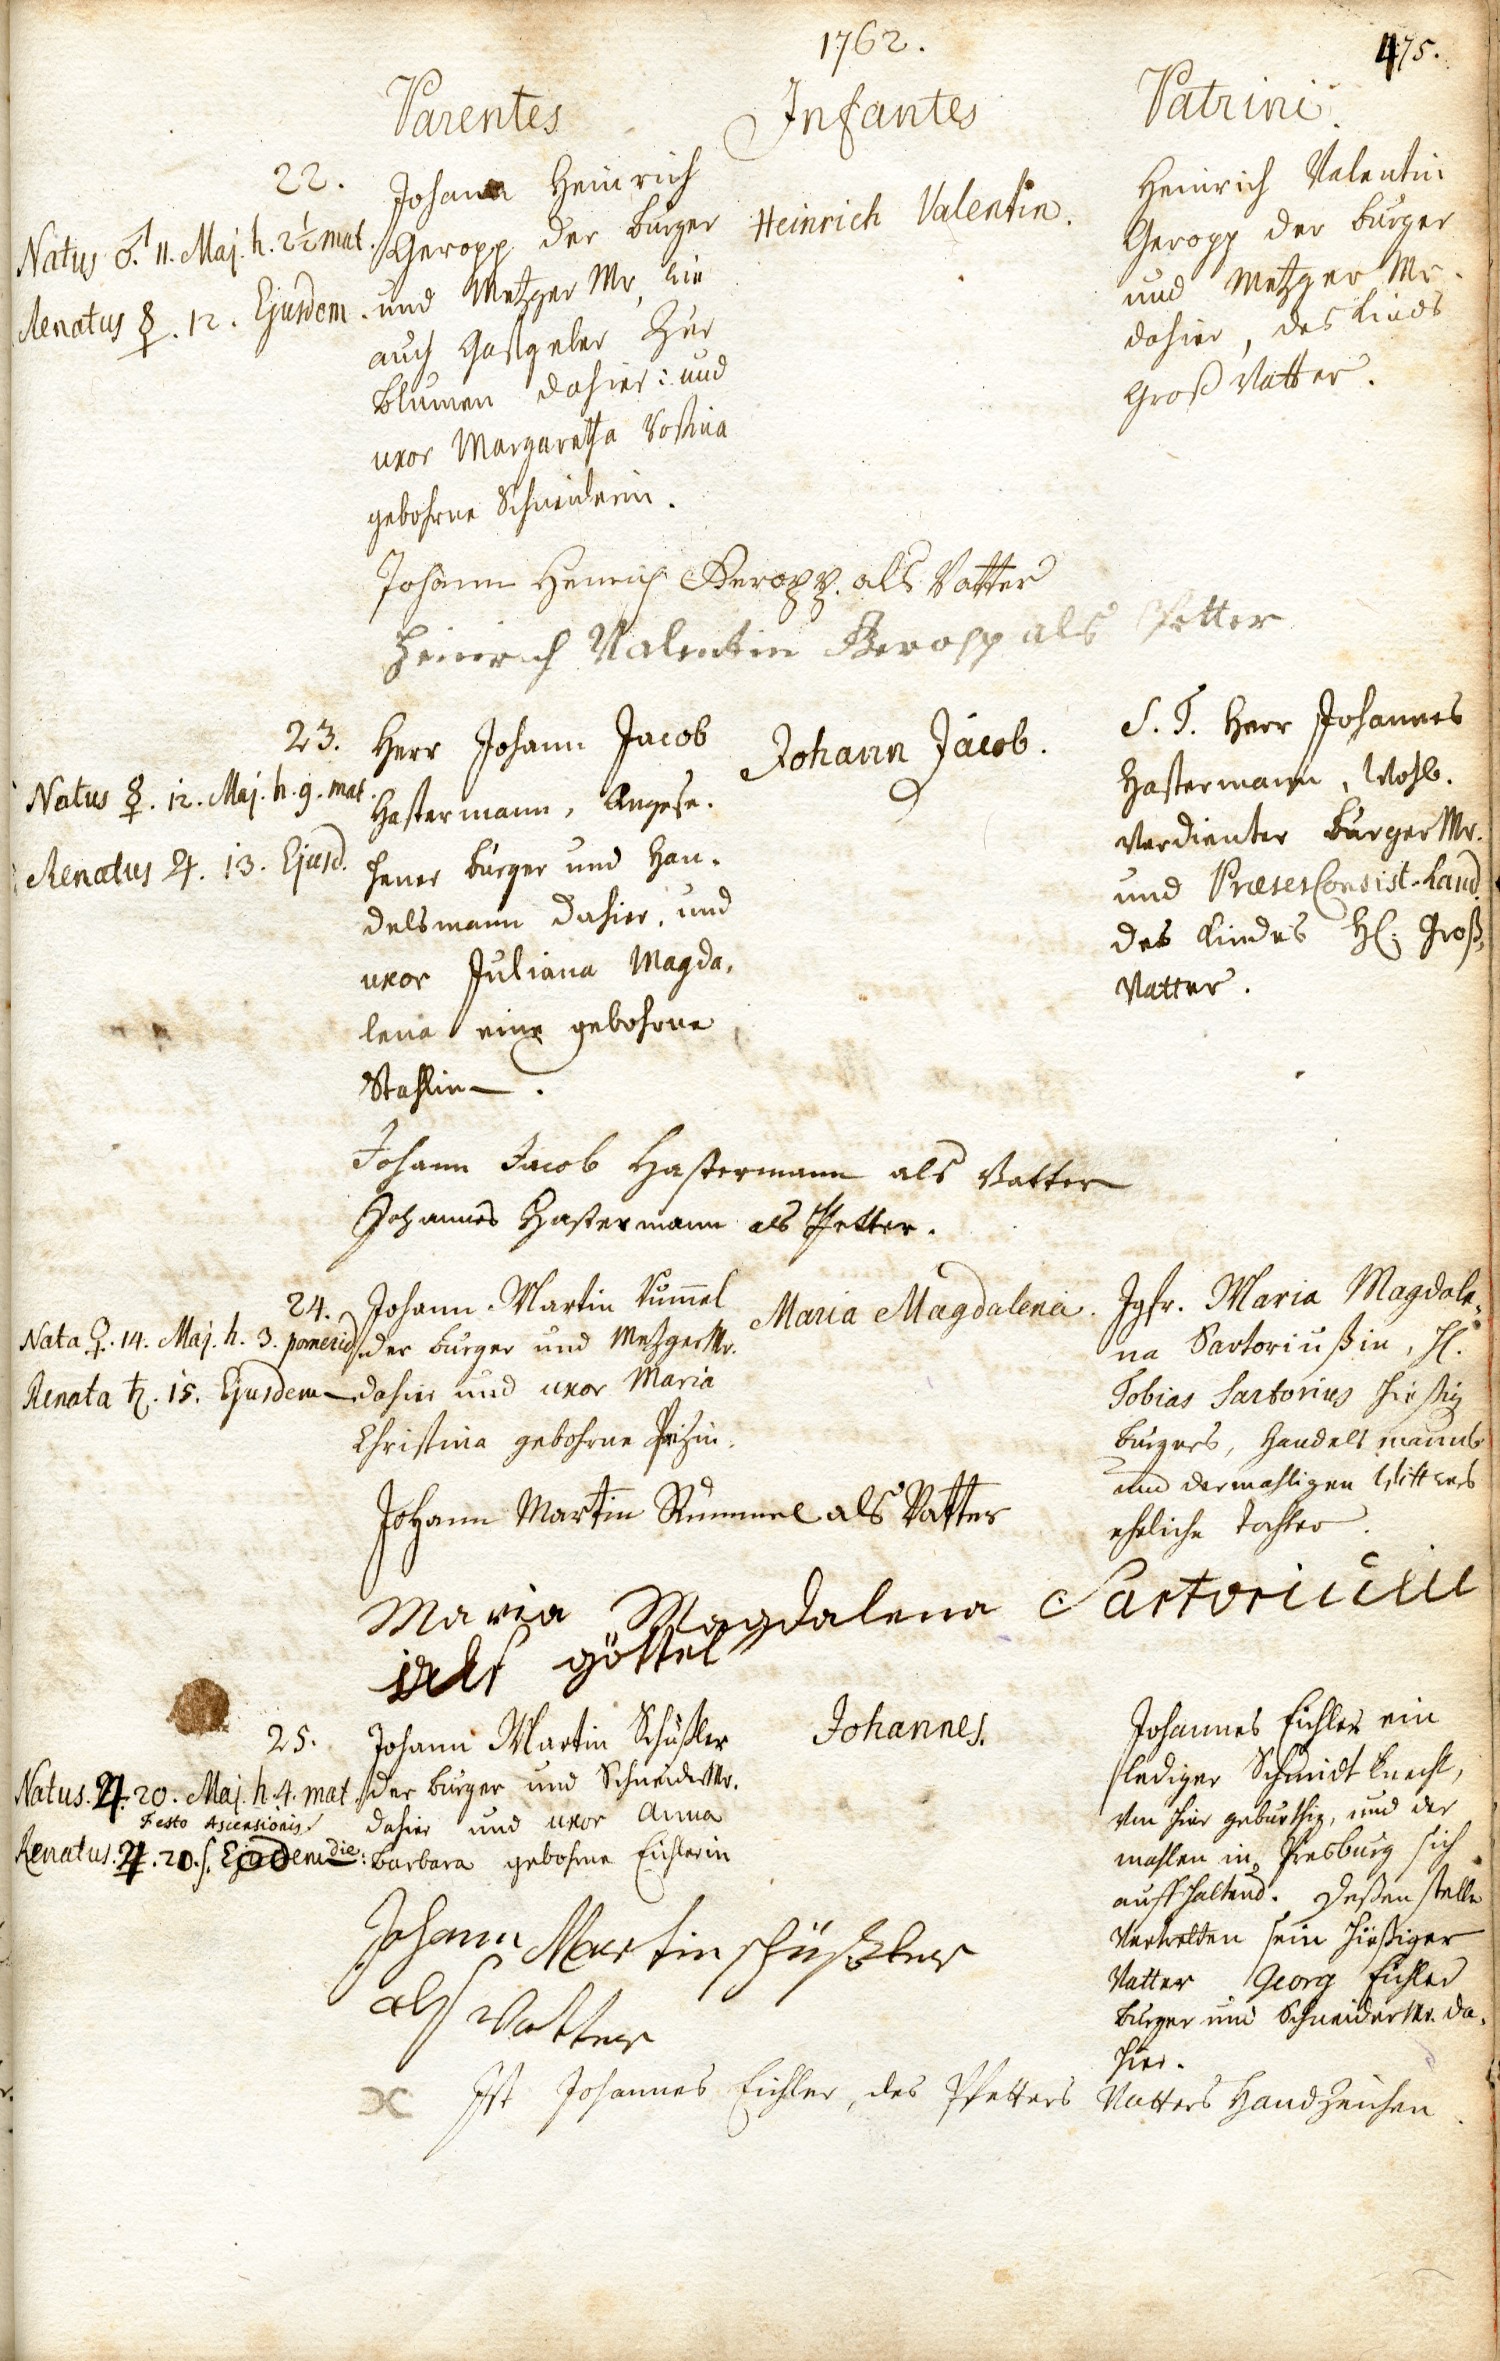 1762.
475.
Parentes
Infantes
Patrini.
22.
Natus ♂. 11. Maj. h. 2½ mat.
Renatus ☿. 12. Ejusdem.
Johann Heinrich
Geropp der burger
und Metzger Mr, wie
auch Gastgeber Zur
Blumen dahier: und
uxor Margaretha Rosina
gebohrne Schneiderin.
Heinrich Valentin.
Heinrich Valentin
Geropp der burger
und Metzger Mr.
dahier, des Kinds
Groß Vatter.
Johann Henrich Geropp. als Vatter
Heinrich Valentin Geropp als Petter
23.
Natus ☿. 12. Maj. h. 9. mat.
Renatus ♃. 13. Ejusd.
Herr Johann Jacob
Hastermann, Angese-
hener burger und Han-
delsmann dahier, und
uxor Juliana Magda-
lena eine gebohrne
Stahlin.
Johann Jacob.
S. T. Herr Johannes
Hastermann, Wohl-
verdienter burger Mr.
und Præses Consist. Laud.
des Kindes H. Groß-
Vatter.
Johann Jacob Hastermann als Vatter
Johannes Hastermann als Petter.
24.
Nata ♀. 14. Maj. h. 3. pomerid.
Renata ♄. 15. Ejusdem
Johann Martin Rum̅el
der burger und Metzger Mr.
dahier und uxor Maria
Christina gebohrne
Maria Magdalena.
Jgfr. Maria Magdale-
na Sartoriußin, H.
Tobias Sartorius hießig
burgers, Handelsmanns
und dermahligen Wittwers
eheliche Tochter.
Johann Martin Rummel als Vatter
Maria Magdalena
als göttel
25.
Natus. ♃. 20. Maj. h. 4. mat.
Festo Ascensionis
Renatus. ♃. 20. s. die:
Johann Martin Schüßler
der burger und Schneider Mr.
dahier und uxor Anna
Barbara gebohrne Eichlerin
Johannes.
Johannes Eichler ein
lediger Schmidt Knecht,
von hier gebürthig, und der
mahlen in Presburg sich
auffhaltend. Deßen stelle
Vertretten sein hießiger
Vatter Georg Eichler
burger und Schneider Mr. da-
hier.
Johann Martin schüßler
als Vatter
x Ist Johannes Eichler, des Pfetters Vatters Handzeichen